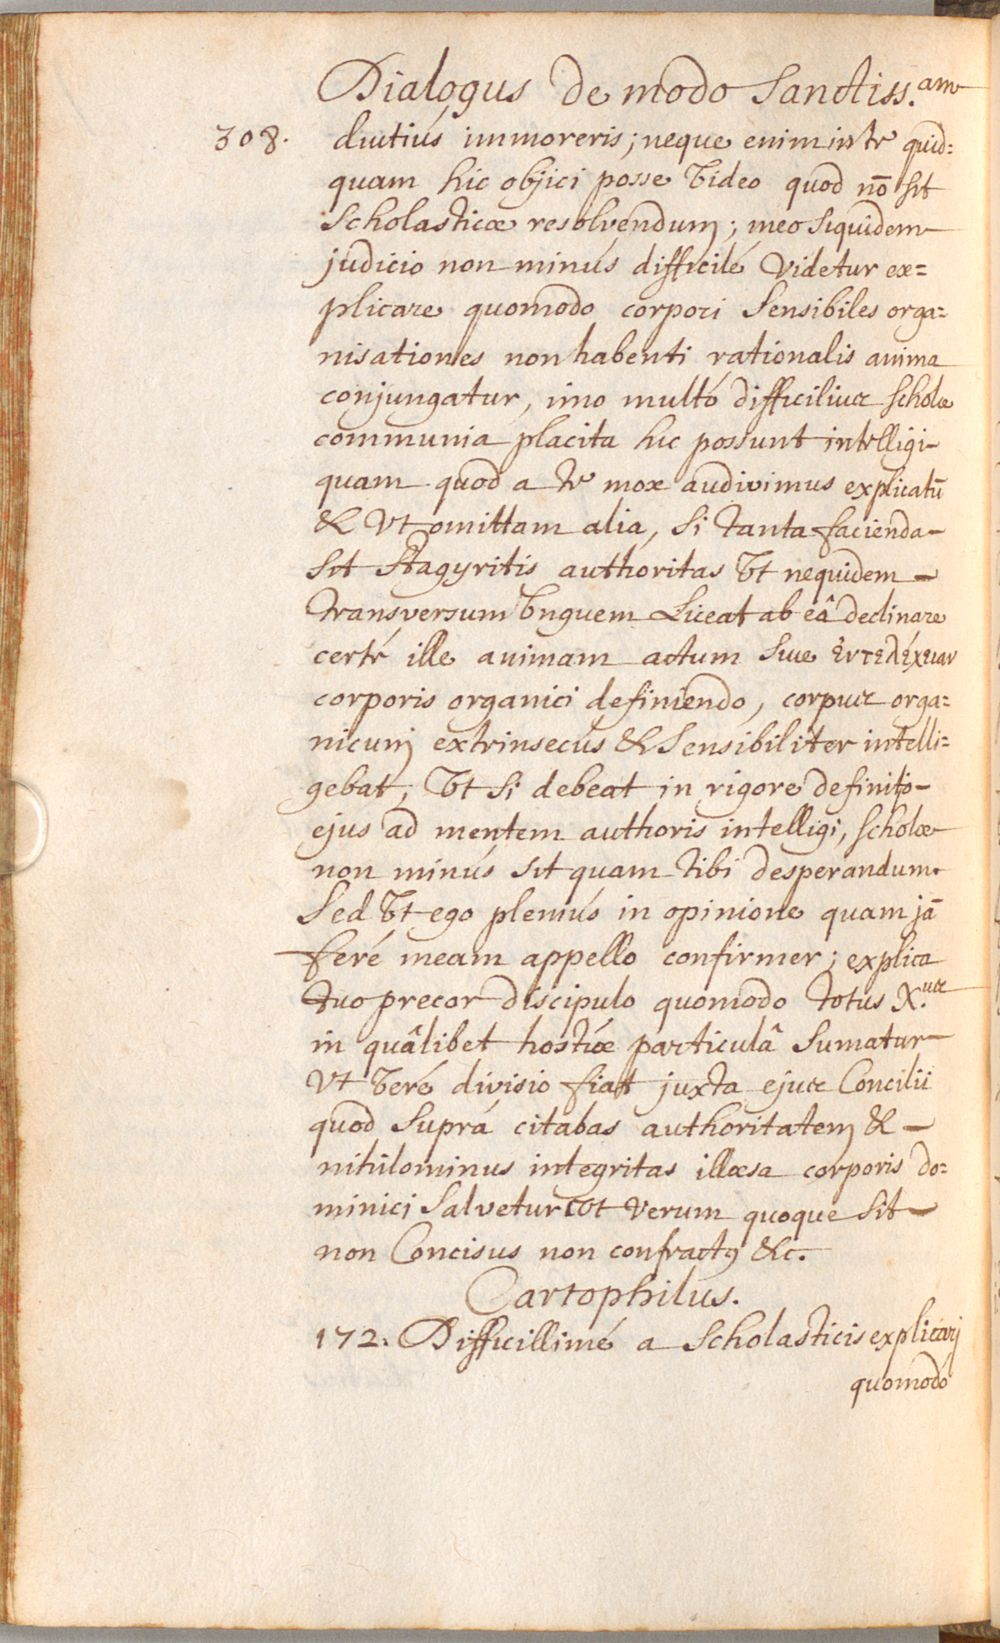 Dialogus de modo Sanctiss.am
308. diutiús immoreris; neque enim in te quid=
quam hic objici posse video quod nō sit
Scholasticæ resolvendum; meo siquidem
judicio non minús difficilé videtur ex=
plicare quomodo corpori Sensibiles orga=
nisationes non habenti rationalis anima
conjungatur, imo multó difficilius scholæ
communia placita hic possunt intelligi
quam quod a te mox audivimus explicatū
& Ut omittam alia, si tanta facienda
sit Stagyritis authoritas Ut nequidem
transversum Unguem Liceat ab eâ declinare
certé ille animam actum Sive ἐντελέχειαν
corporis organici definiendo, corpus orga=
nicum extrinsecus & Sensibiliter intelli=
gebat; Ut si debeat in rigore definitio
ejus ad mentem authoris intelligi, scholæ
non minús sit quam tibi desperandum.
Sed Ut ego pleniús in opinione quam jā
feré meam appello confirmer; explica
tuo precor discipulo quomodo totus X.us
in quâlibet hostiæ particulâ Sumatur
Ut Veré divisio fiat juxta ejus Concilii
quod Suprá citabas authoritatem &
nihilominus integritas illæsa corporis do=
minici Salvetur Ut Verum quoque sit
non Concisus non confractꝰ &c.
Cartophilus.
172. Difficillimé a Scholasticis explicari
quomodo